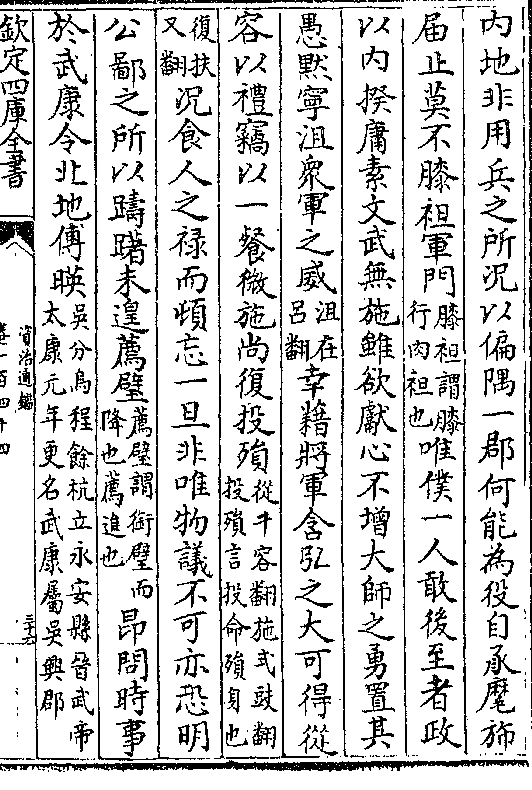 内地非用兵之所况以偏隅一郡何能為役自承麾斾
届止莫不膝袒軍門膝袒謂膝行肉袒也唯僕一人敢後至者政
以内揆庸素文武無施雖欲獻心不增大師之勇置其
愚黙寧沮衆軍之威沮在吕翻幸藉將軍含弘之大可得從
容以禮竊以一餐微施尚復投殞從千容翻施式䜴翻投殞言投命殞身也
復扶又翻况食人之禄而頓忘一旦非唯物議不可亦恐明
公鄙之所以躊躇未遑薦璧薦璧謂銜璧而降也薦進也昂問時事
於武康令北地傅暎吳分烏程餘杭立永安縣晉武帝太康元年更名武康屬吳興郡
欽定四庫全書
資治通鑑
卷一百四十四